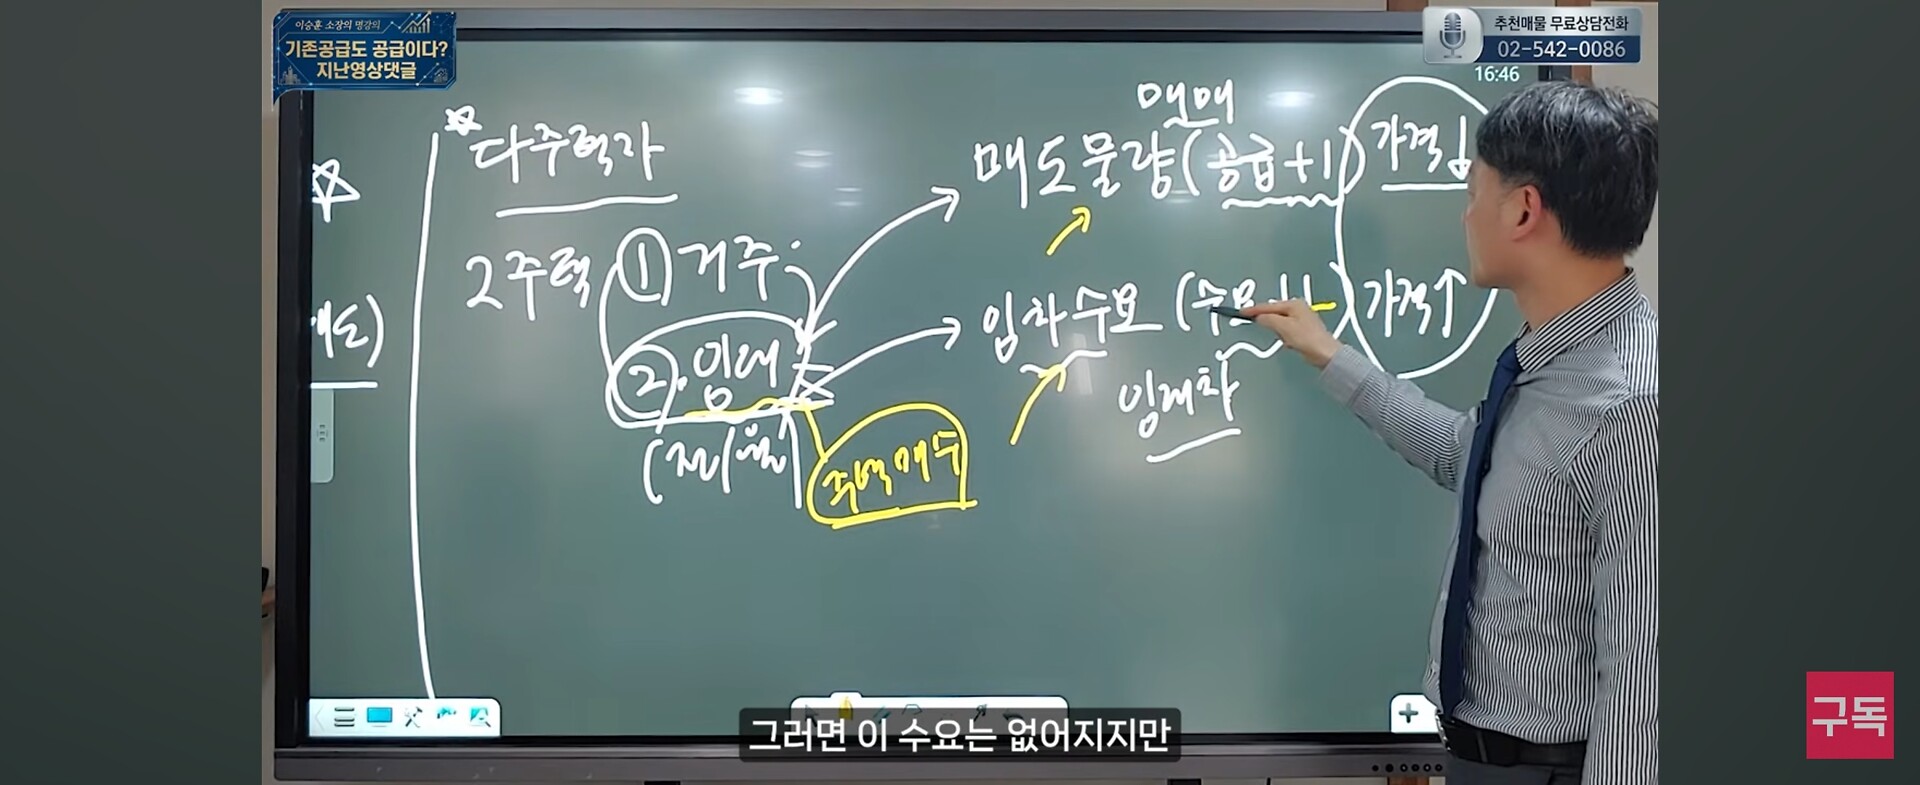 이승훈 소장의 명강의
기존공급도 공급이다?
지난영상댓글
추천매물 무료상담전화
02-542-0086
16:46
다주택자
2주택 ① 거주
② 임대
(전/월)
주택매수
매매
매도물량(공급+1) 가격↓
임차수요(수요+1) 가격↑
임대차
그러면 이 수요는 없어지지만
구독